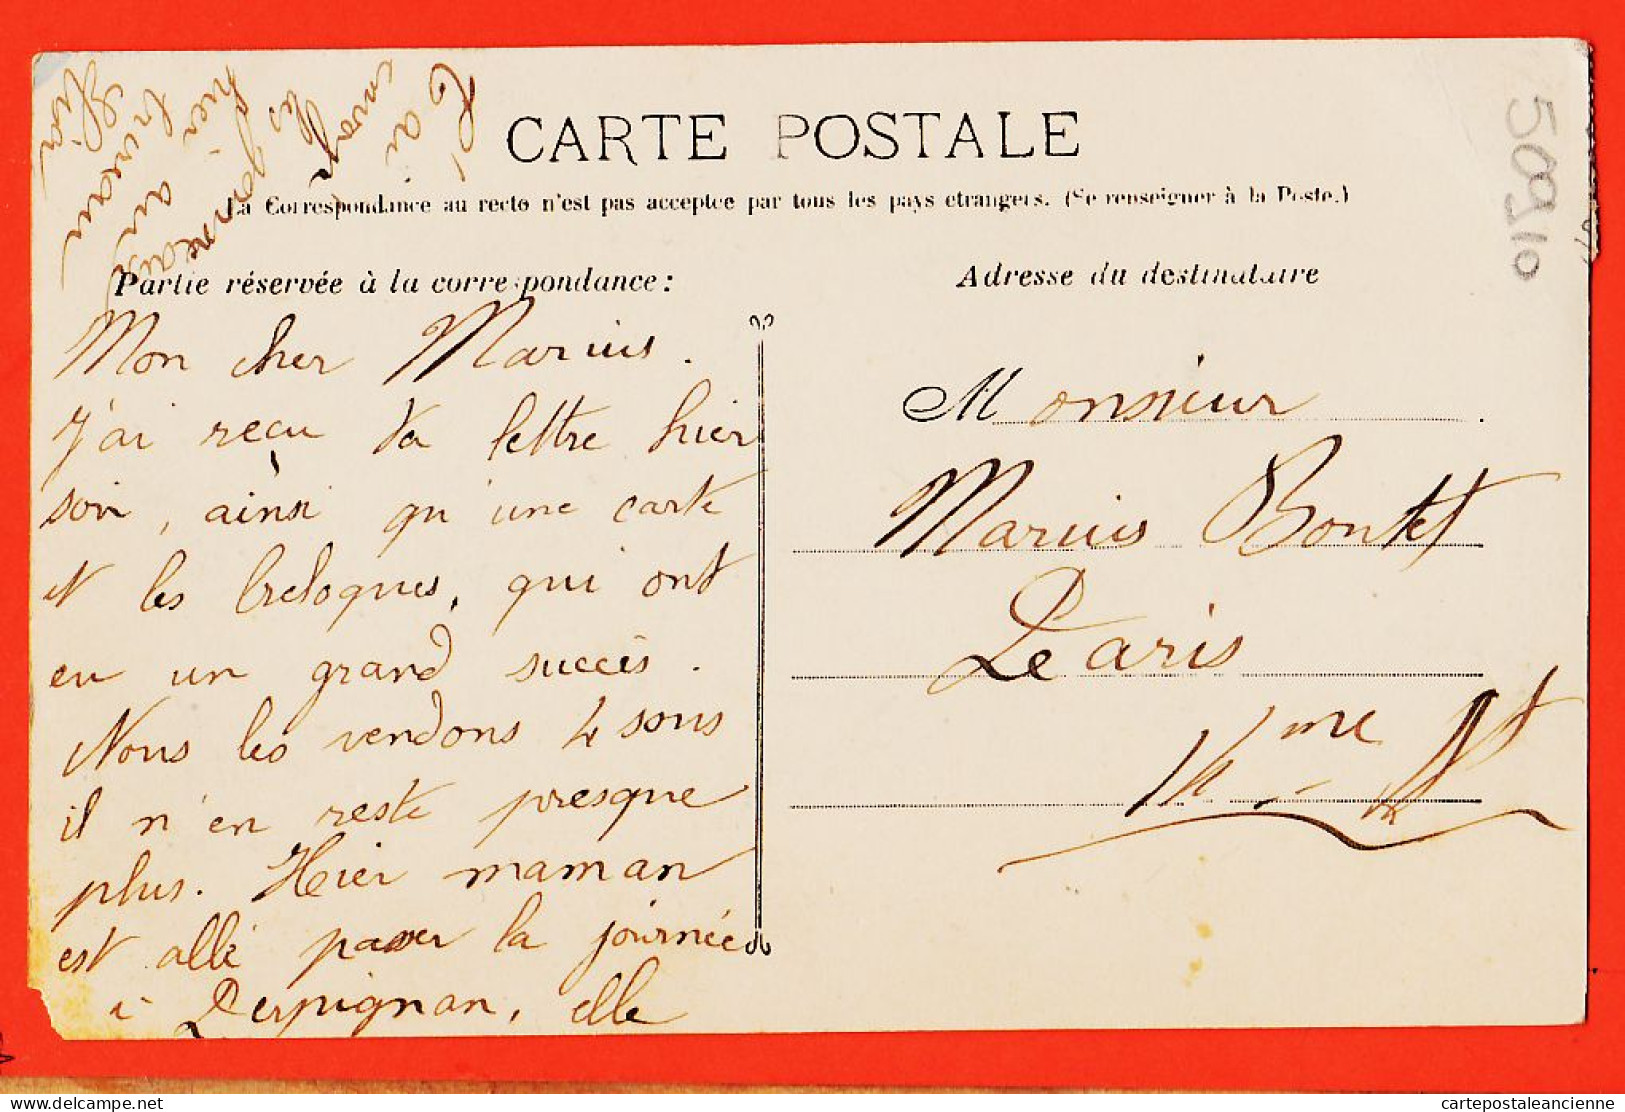 T'ai
envoyé
les
journeaux
hier
ainsi
CARTE POSTALE
La Correspondance au recto n'est pas acceptée par tous les pays étrangers. (Se renseigner à la Poste.)
50910
Partie réservée à la correspondance:
Adresse du destinataire
Mon cher Marius.
J'ai reçu ta lettre hier
soir, ainsi qu'une carte
et les breloques, qui ont
eu un grand succès.
Nous les vendons 4 sous
il n'en reste presque
plus. Hier maman
est allé passer la journée
à Perpignan, elle
Monsieur
Marius Boutet
Paris
cartepostaleancienne